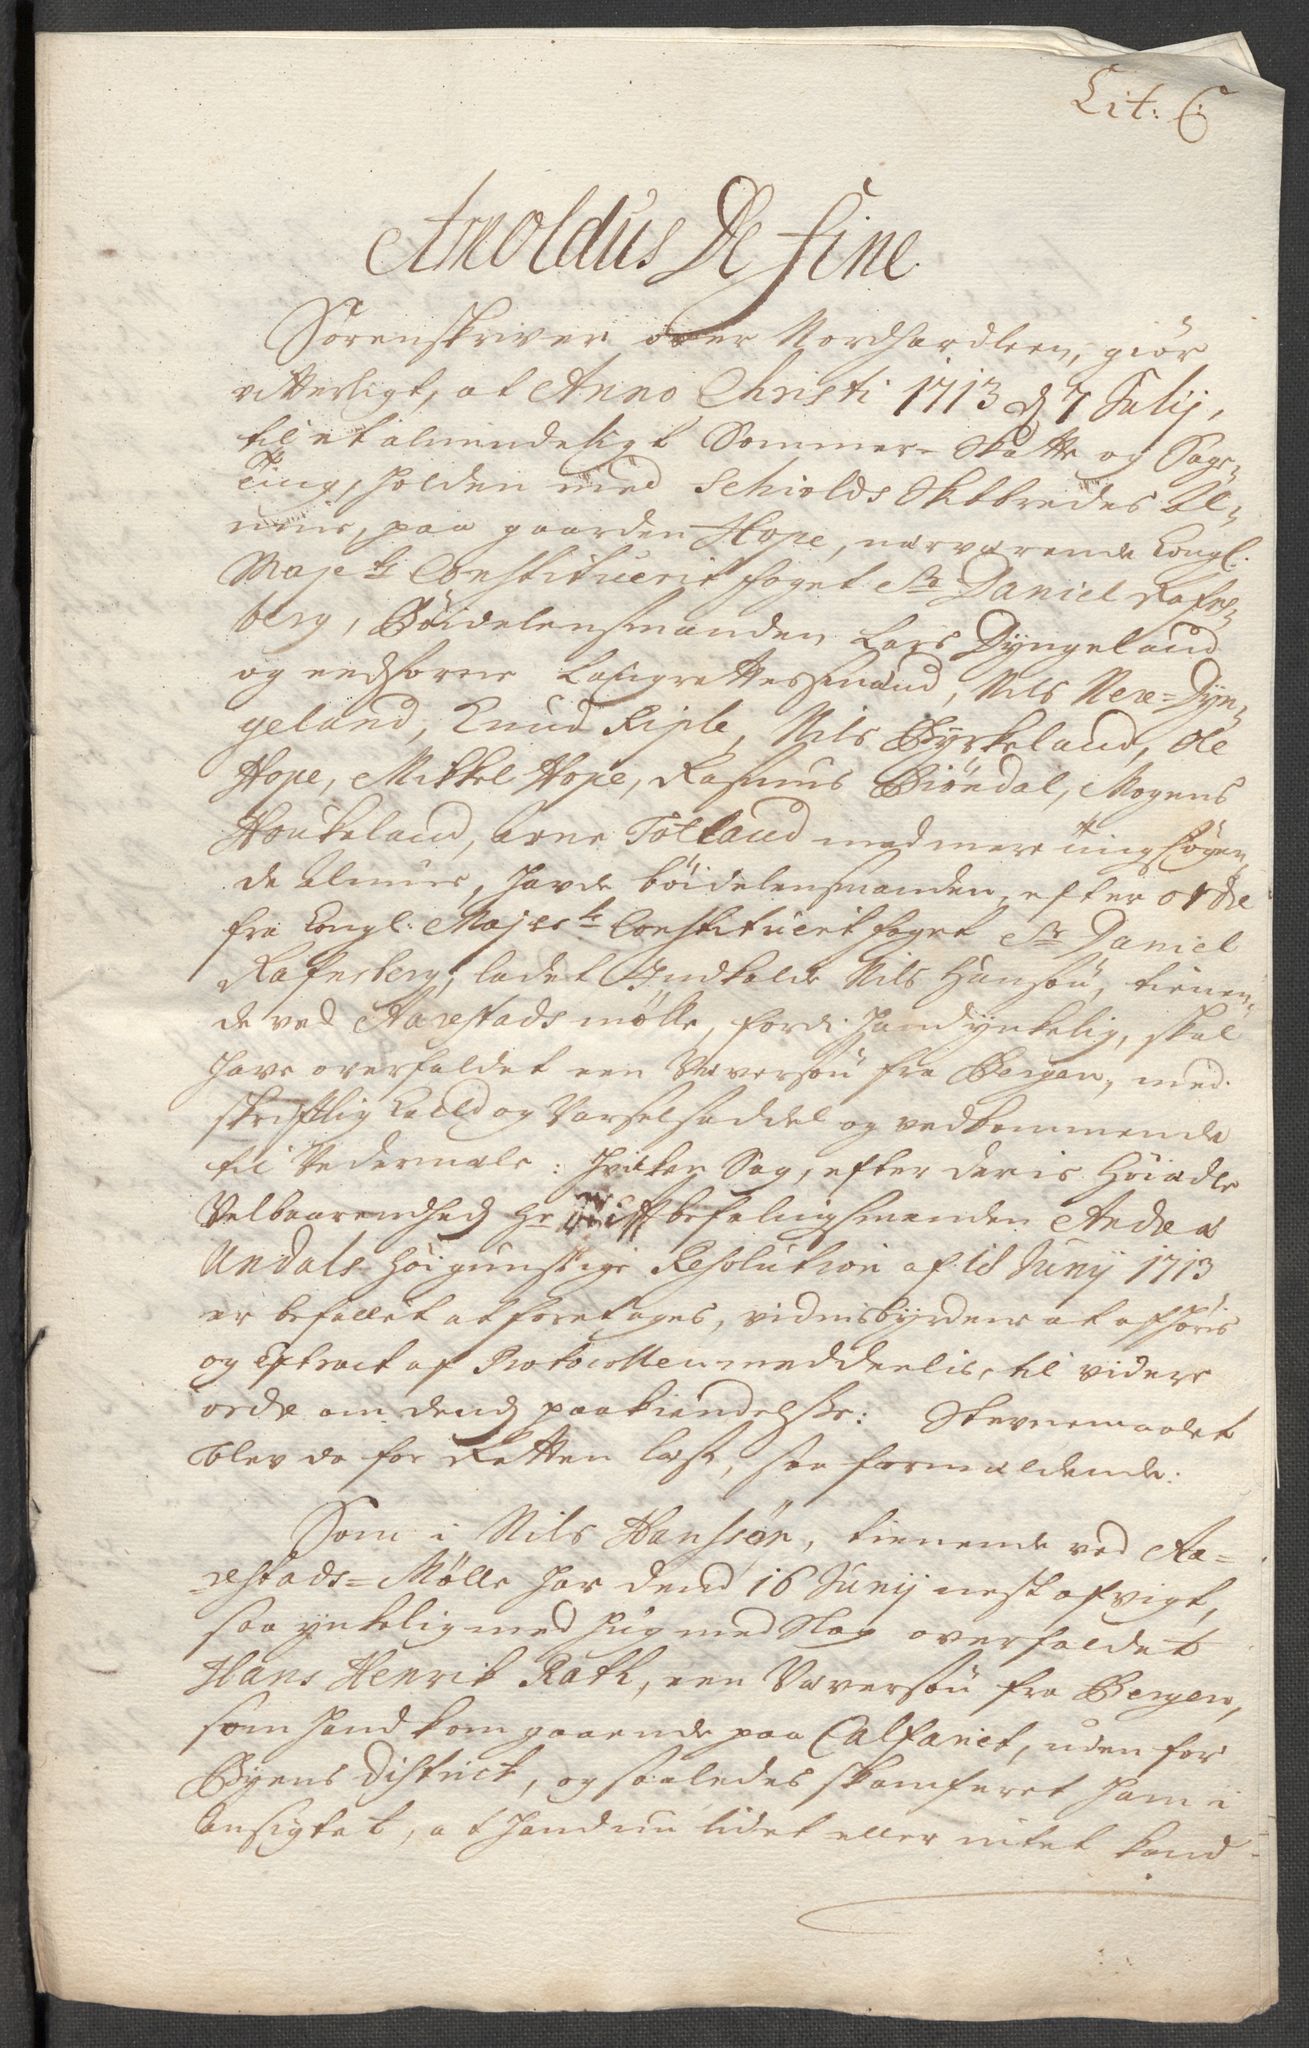 Lit: C:
Arnoldus De Fine
Sorenskriver over Nordhordleen, giör
vitterligt, at Anno Christi 1713 d 7 Julij,
til et almindeligt Sommer- Skatte og Sage-
Ting, holden med Schiolds Skibredes Al-
mue, paa gaarden Hope, nærværende Kongl:
Majts Constituerit foget Sr Daniel Rafns-
berg, Böidelensmanden Lars Dyngeland
og eedsorne Laugrettesmænd, Nils Nere-Dyn-
geland, Knud Riple, Nils Byrkeland, Ole
Hope, Mikkel Hope, Rasmus Biöndal, Mogens
Houkeland, Arne Totland med mere tingsögen-
de Almue, hafde böidelensmanden, efter ordre
fra Kongl: Majests Constituerit foget Sr Daniel
Rafnsberg, ladet Indkalde Nils Hansön, tienen-
de ved Aarestads mölle, fordi hand ynkelig, skal
have overfaldet een Væversön fra Bergen, med
skriftlig Kald og Varselseddel og vedkommende
til Vedermæle: hvilken Sag, efter deris Höiædle
Velbaarenhed Hr Stiftbefalingsmanden Andreæ
Undals höigunstige Resolution af 18 Junij 1713
er befallet at foretages, vidnisbyrdene at afhöris
og Extract af Protocollen meddeelis, til videre
ordre om dend paakiendelse: Stevnemaalet
blev da for Retten læst, saa formældende:
Som i Nils Hansön, tienende ved Aa-
restads-Mölle har dend 16 Junij nest afvigt,
saa ynkelig med hug med Slag overfaldet
Hans Henrik Rath, een Væversön fra Bergen,
som hand kom gaaende paa Calfaret, uden for
Byens District, og saaledes skamferet ham i
Ansigtet, at hand nu lidet eller intet kand